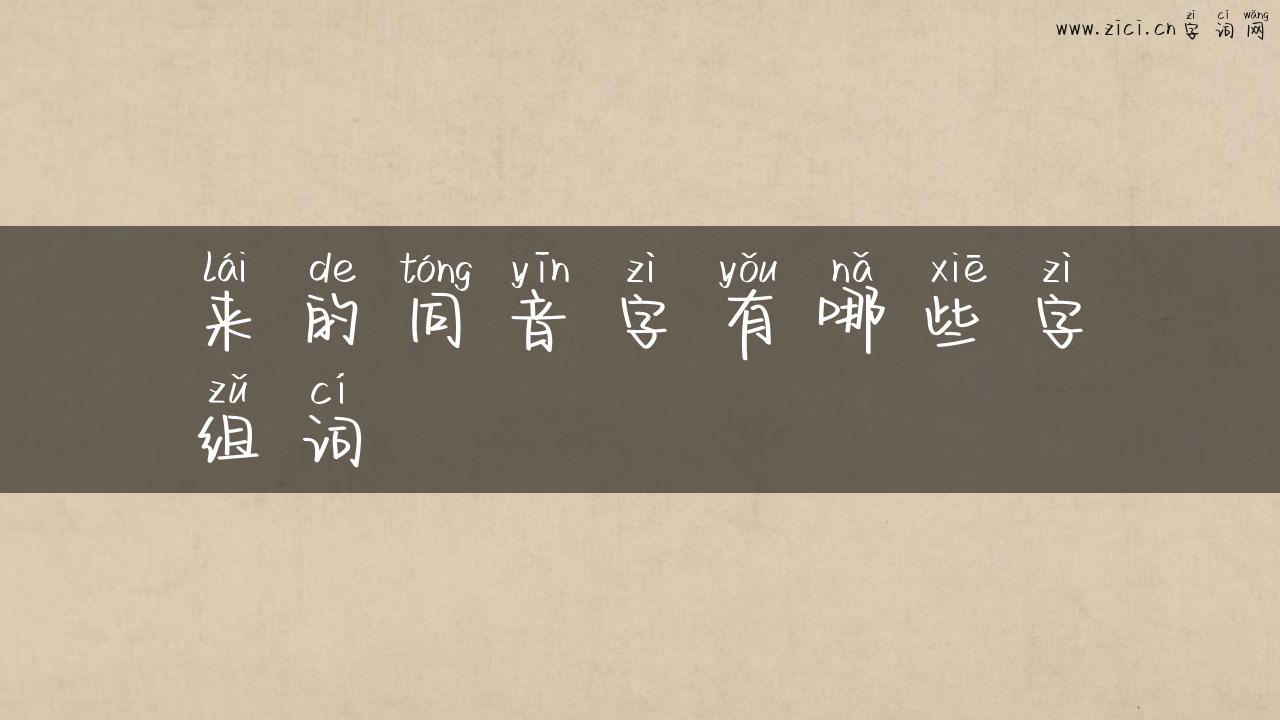 zì cí wǎng
www.zici.cn 字词网
lái de tóng yīn zì yǒu nǎ xiē zì
来的同音字有哪些字
zǔ cí
组词